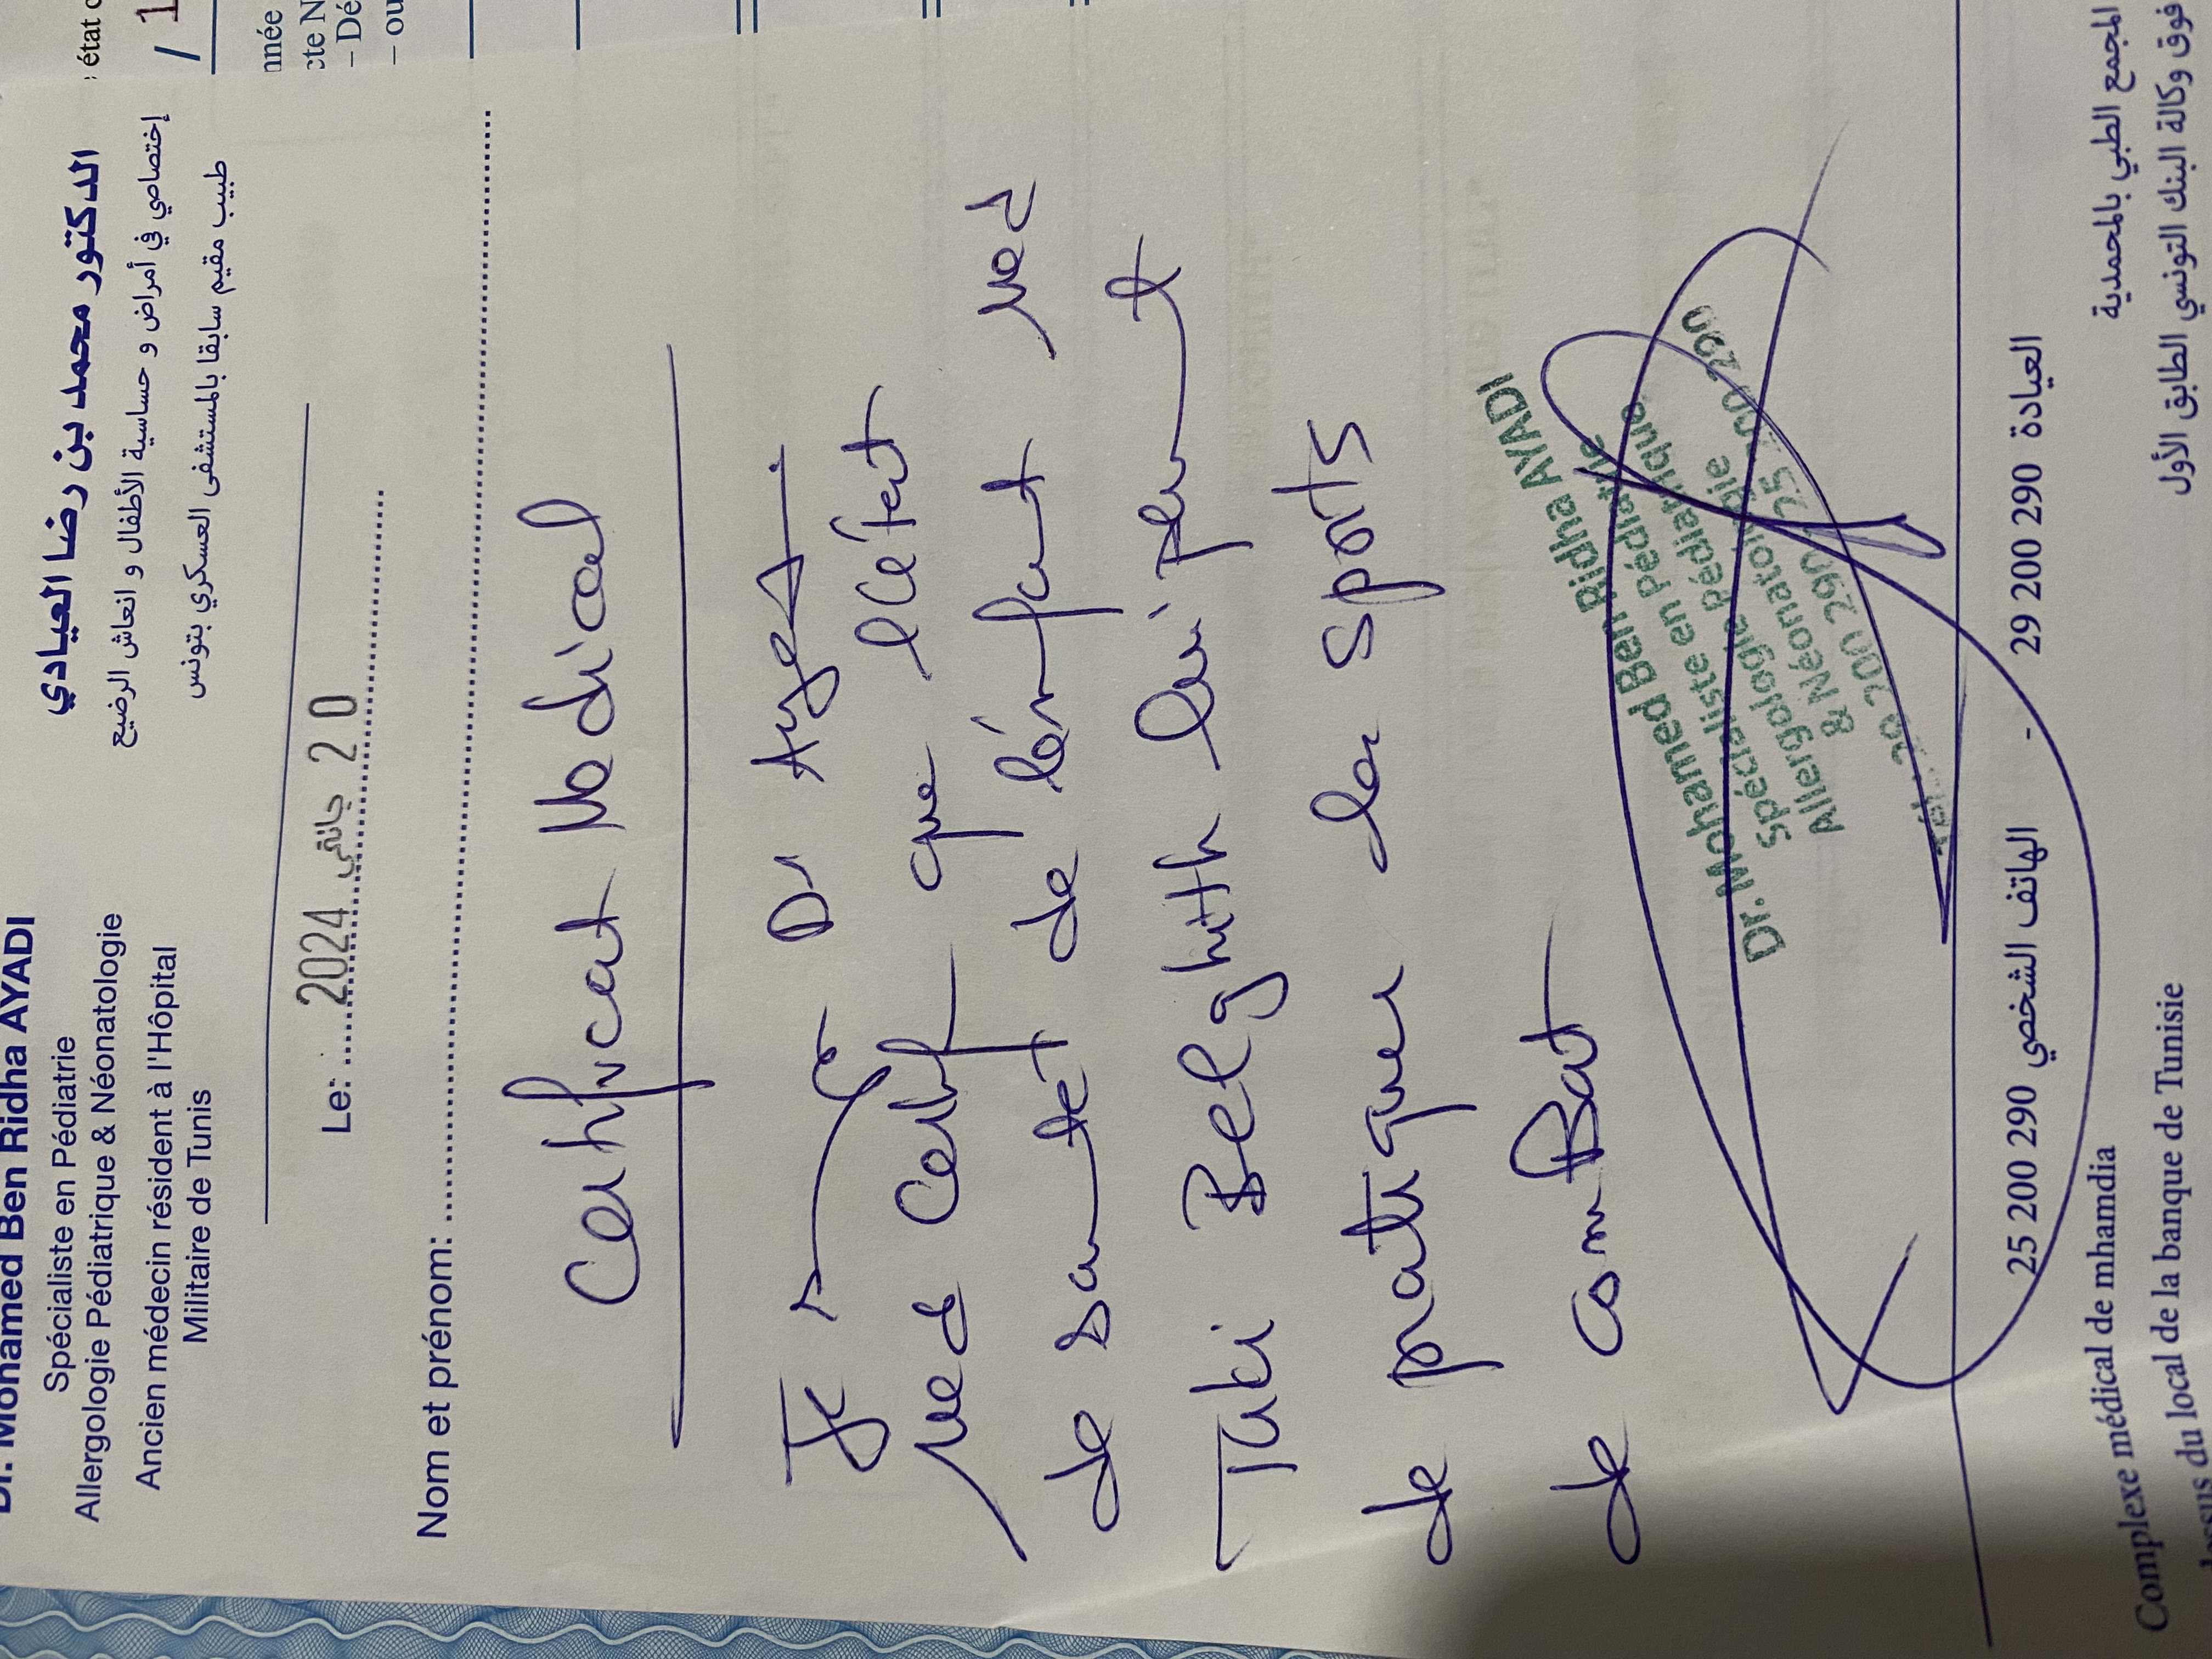 Dr. Mohamed Ben Ridha AYADI
Spécialiste en Pédiatrie
Allergologie Pédiatrique & Néonatologie
Ancien médecin résident à l'Hôpital
Militaire de Tunis
الدكتور محمد بن رضا العيادي
إختصاصي في أمراض و حساسية الأطفال و انعاش الرضيع
طبيب مقيم سابقا بالمستشفى العسكري بتونس
Le: 2024 جانفي 20
Nom et prénom:
Certificat Médical
Je Dr Ayadi
Med Certif que l'état
de santet de l'enfant Med
Taki Belghith lui permet
de pratiquer les sports
de comBat
Dr. Mohammed Ben Ridha AYADI
Spécialiste en Pédiatrie
Allergologie Pédiatrique
& Néonatologie
25 200 290 الهاتف الشخصي - 29 200 290 العيادة
Complexe médical de mhamdia
dessus du local de la banque de Tunisie
المجمع الطبي بالمحمدية
فوق وكالة البنك التونسي الطابق الأول
état
/ 1
nnée
cte N
- Dé
- ou